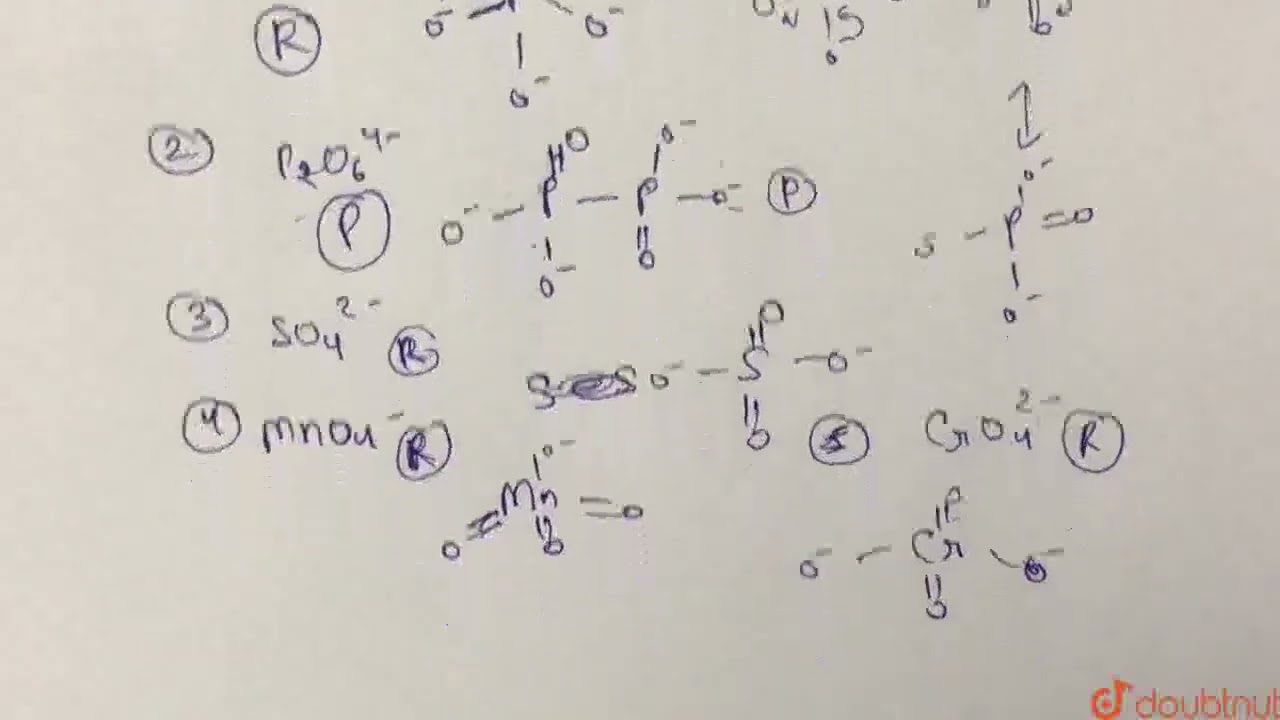 R O⁻ O⁻ O⁻
② P₂O₆⁴⁻ O O⁻
P O⁻ – P – P – O⁻ P
O⁻ O
O⁻
S – P = O
O⁻
③ SO₄²⁻ R O
O⁻ – S – O⁻
O
④ MnO₄⁻ R O⁻
O = Mn = O
O
5 CrO₄²⁻ R
O
O⁻ – Cr – O⁻
O
doubtnut